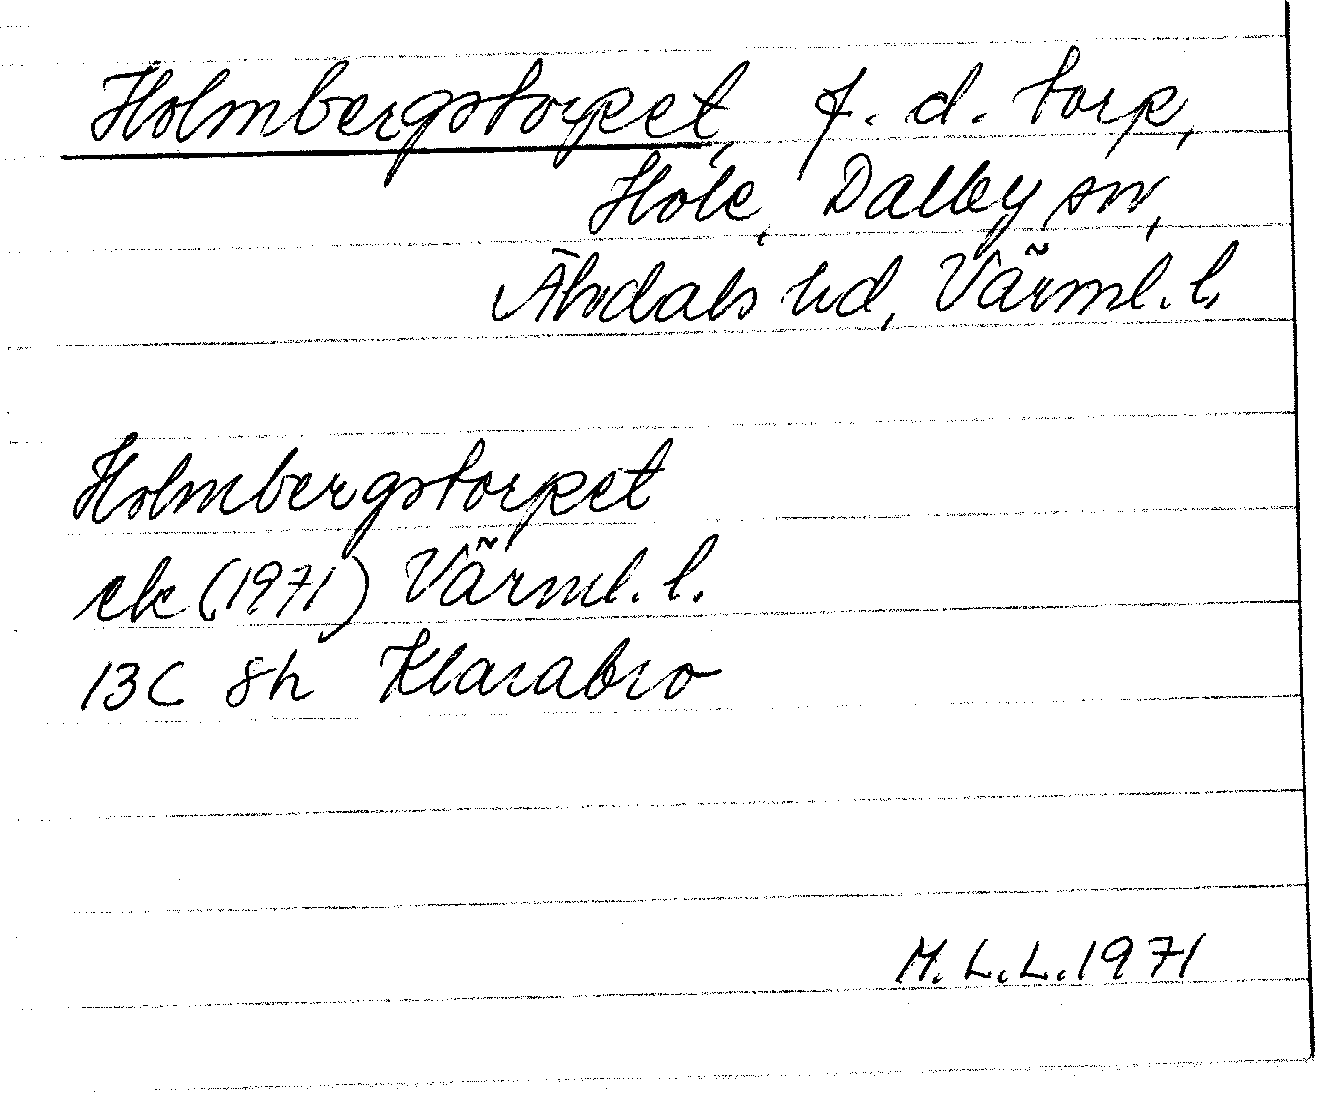 Holmbergstorpet, f. d. torp,
Hole, Dalby sn,
Älvdals hd, Värml. l.
Holmbergstorpet
ek (1971) Värml. l.
13C 8h Klarabro
M. L. L. 1971